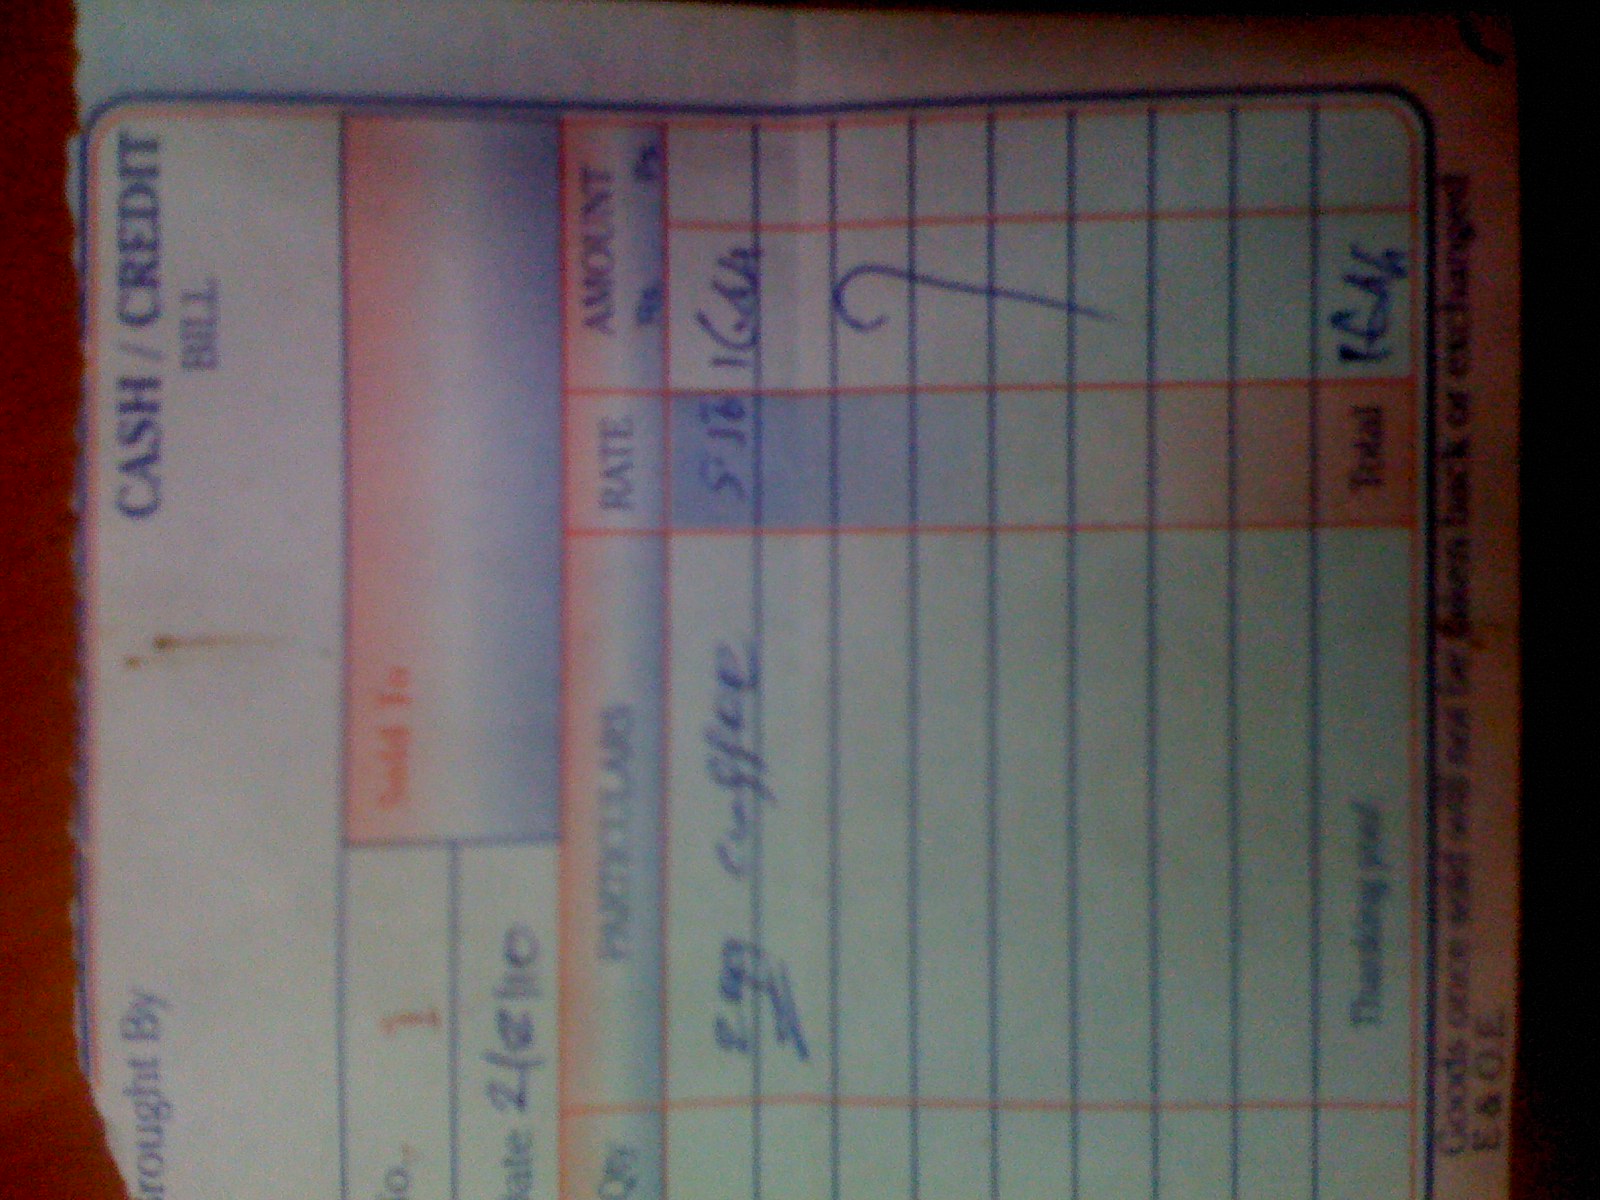 Brought By
CASH / CREDIT
BILL
No.. 1
Sold To
Date 2/8/10
Qty PARTICULARS RATE AMOUNT
Rs. Ps.
Thanking you! Total
Goods once sold will not be taken back or exchanged
E & O E